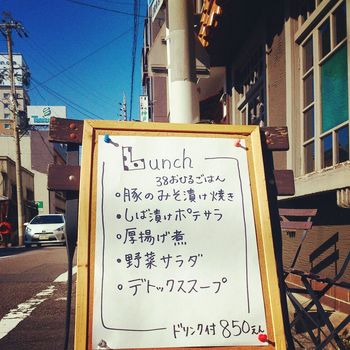 Lunch
38おひるごはん
・豚のみそ漬け焼き
・しば漬けポテサラ
・厚揚げ煮
・野菜サラダ
・デトックススープ
ドリンク付 850えん